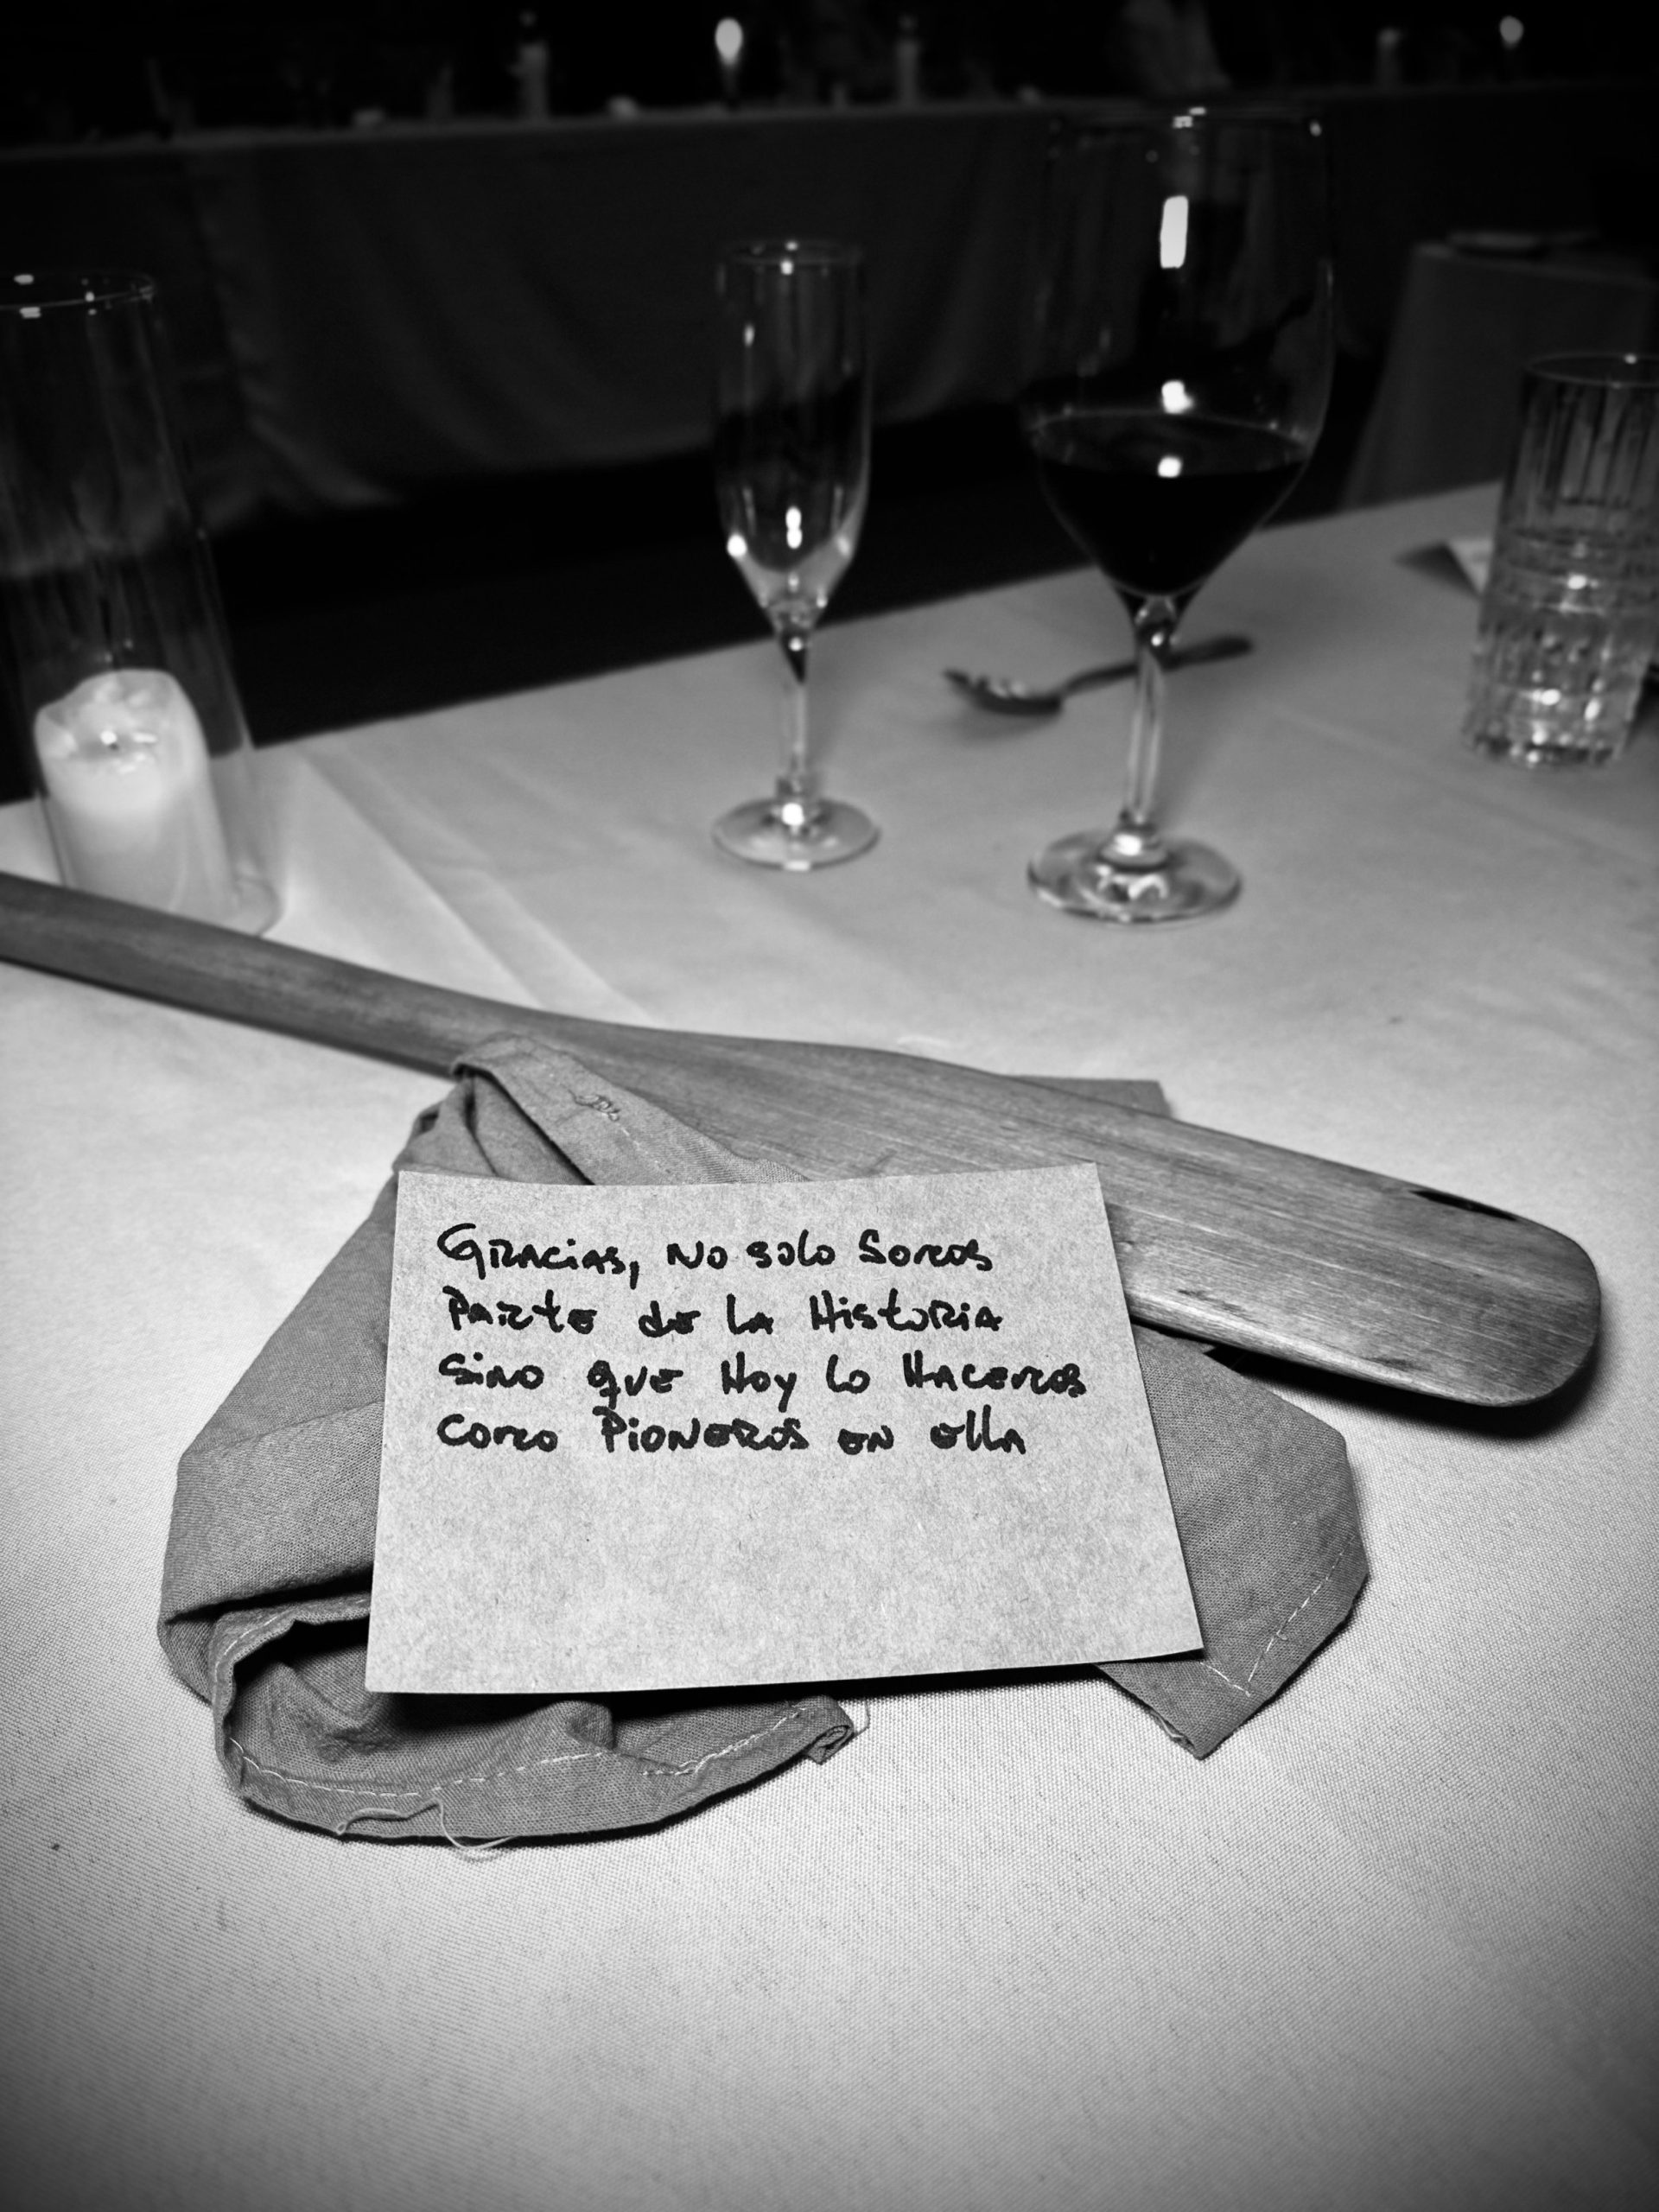 Gracias, no solo somos
parte de la Historia
sino que Hoy lo Hacemos
como Pioneros en ella